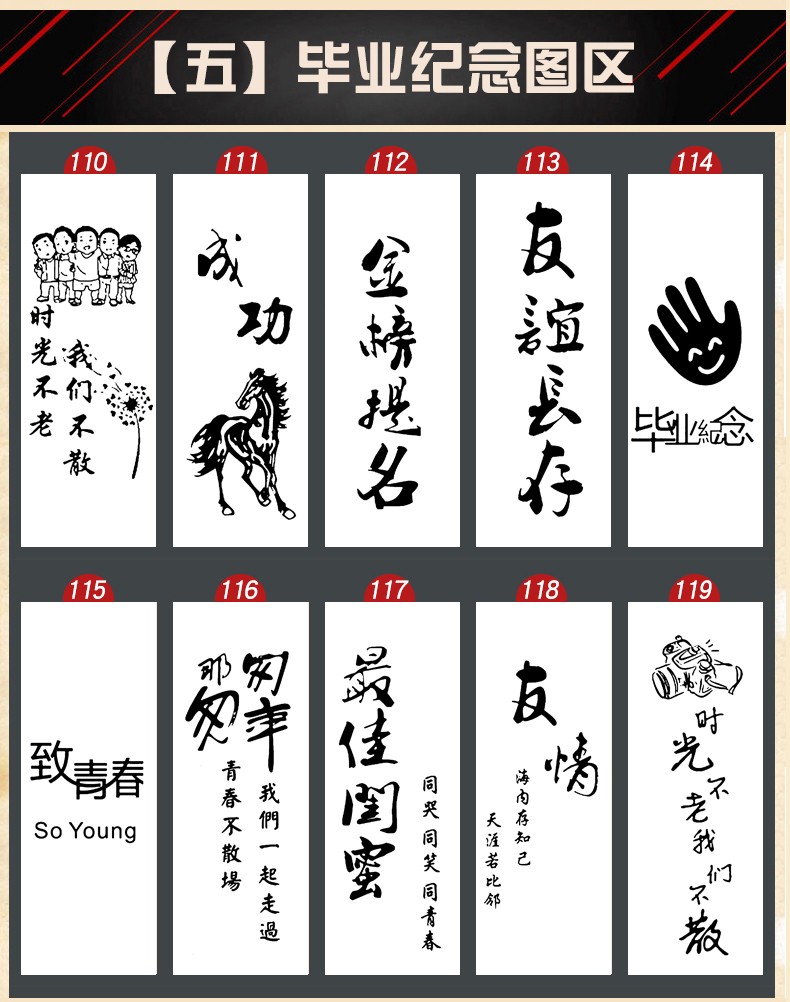 【五】毕业纪念图区
110
时光不老
我们不散
111
成功
112
金榜提名
113
友誼長存
114
毕业紀念
115
致青春
So Young
116
匆匆那年
我們一起走過
青春不散場
117
最佳闺蜜
同哭同笑同青春
118
友情
海内存知己
天涯若比邻
119
时光不老我们不散